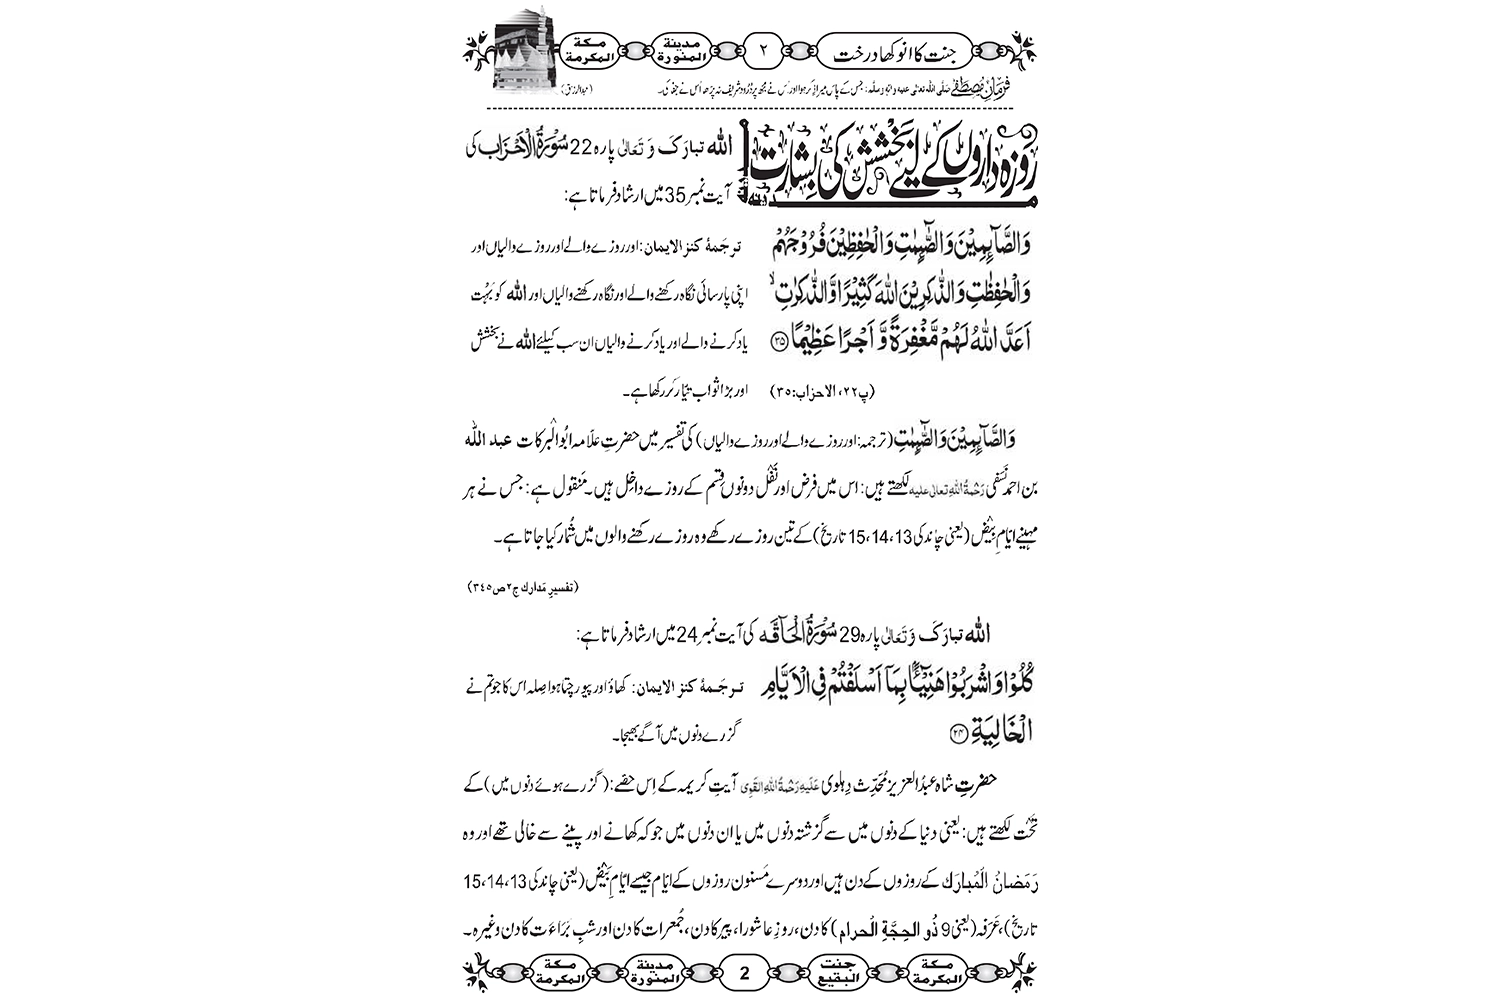 جنت کا انوکھا درخت ۲ مدینۃ المنورۃ مکۃ المکرمۃ
فرمانِ مصطفٰے صَلَّی اللہ تعالٰی علیہ والہٖ وسلَّم: جس کے پاس میرا ذکر ہوا اور اُس نے مجھ پر دُرُود شریف نہ پڑھا اُس نے جفا کی۔ (عبدالرزاق)
روزہ داروں کے لیے بخشش کی بشارت
اللہ تبارَکَ وَ تَعَالٰی پارہ 22 سُوْرَۃُ الْاَحْزَاب کی
آیت نمبر 35 میں ارشاد فرماتا ہے:
وَالصَّآىِٕمِیْنَ وَالصّٰٓىِٕمٰتِ وَالْحٰفِظِیْنَ فُرُوْجَہُمْ ترجَمۂ کنز الایمان: اور روزے والے اور روزے والیاں اور
وَالْحٰفِظٰتِ وَالذّٰکِرِیْنَ اللہَ کَثِیْرًا وَّالذّٰکِرٰتِ ۙ اپنی پارسائی نگاہ رکھنے والے اور نگاہ رکھنے والیاں اور اللہ کو بَہُت
اَعَدَّ اللہُ لَہُمْ مَّغْفِرَۃً وَّ اَجْرًا عَظِیْمًا ﴿۳۵﴾ یاد کرنے والے اور یاد کرنے والیاں ان سب کیلئے اللہ نے بخشش
(پ۲۲، الاحزاب:۳۵) اور بڑا ثواب تیّار کر رکھا ہے۔
وَالصَّآىِٕمِیْنَ وَالصّٰٓىِٕمٰتِ (ترجمہ: اور روزے والے اور روزے والیاں) کی تفسیر میں حضرتِ علّامہ ابُوالْبَرَکات عبد اللہ
بن احمد نَسَفی رَحْمۃُ اللہِ تعالٰی علیہ لکھتے ہیں: اس میں فرض اور نَفْل دونوں قِسم کے روزے داخِل ہیں۔ مَنقول ہے: جس نے ہر
مہینے ایّامِ بِیْض (یعنی چاند کی 13، 14، 15 تاریخ) کے تین روزے رکھے وہ روزے رکھنے والوں میں شُمار کیا جاتا ہے۔
(تفسیرِ مَدارک ج۲ ص۳۴۵)
اللہ تبارَکَ وَ تَعَالٰی پارہ 29 سُوْرَۃُ الْحَآقَّہ کی آیت نمبر 24 میں ارشاد فرماتا ہے:
کُلُوْا وَ اشْرَبُوْا ہَنِیْٓـًٔۢا بِمَاۤ اَسْلَفْتُمْ فِی الْاَیَّامِ ترجَمۂ کنز الایمان: کھاؤ اور پیو رچتا ہوا صِلہ اس کا جو تم نے
الْخَالِیَۃِ ﴿۲۴﴾ گزرے دنوں میں آگے بھیجا۔
حضرتِ شاہ عبدُالعزیز مُحَدِّث دِہلوی عَلَیْہِ رَحْمۃُ اللہِ القَوِی آیتِ کریمہ کے اِس حصّے: (گزرے ہوئے دنوں میں) کے
تَحْت لکھتے ہیں: یعنی دنیا کے دنوں میں سے گزشتہ دنوں میں یا ان دنوں میں جو کہ کھانے اور پینے سے خالی تھے اور وہ
رَمَضانُ الْمُبارَک کے روزوں کے دن ہیں اور دوسرے مَسنون روزوں کے ایّام جیسے ایّامِ بِیْض (یعنی چاند کی 13، 14، 15
تاریخ)، عَرَفہ (یعنی 9 ذُو الحِجَّۃِ الْحرام) کا دن، روزِ عاشورا، پیر کا دن، جُمعرات کا دن اور شبِ بَرَاءَت کا دن وغیرہ۔
مکۃ المکرمۃ جنت البقیع 2 مدینۃ المنورۃ مکۃ المکرمۃ